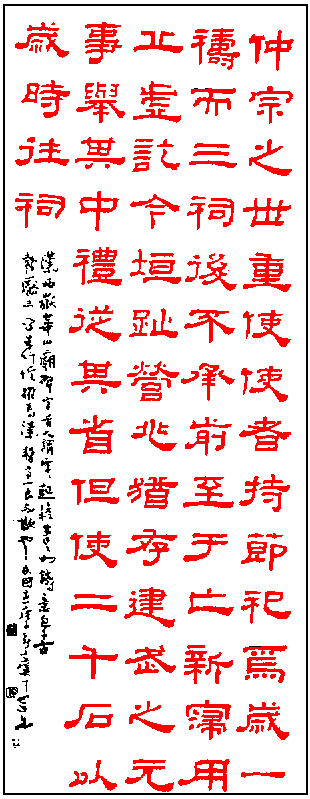 仲宗之世重使使者持節祀焉歲一
禱而三祠後不承前至于亡新寖用
丘虛訖今垣趾營兆猶存建武之元
事舉其中禮從其省但使二千石以
歲時往祠
漢西嶽華山廟碑字